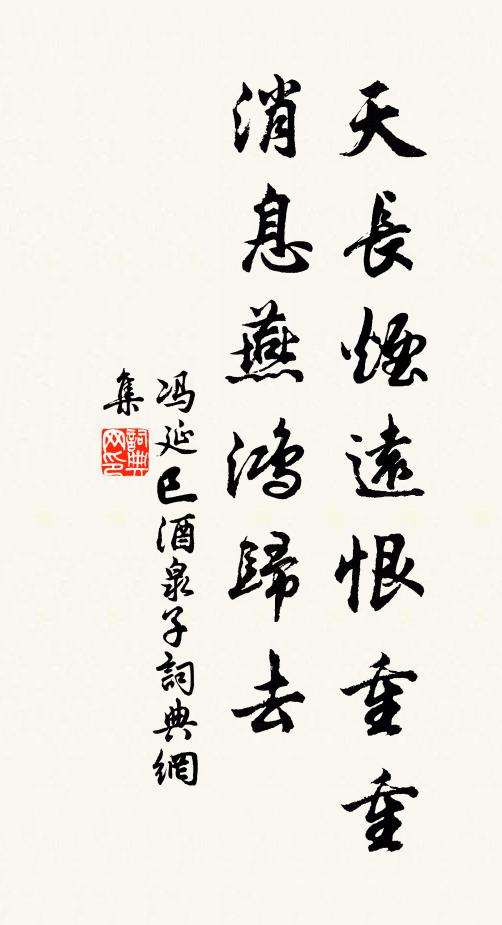 天長煙遠恨重重
消息燕鴻歸去
冯延巳酒泉子詞典網
集
詞典网印